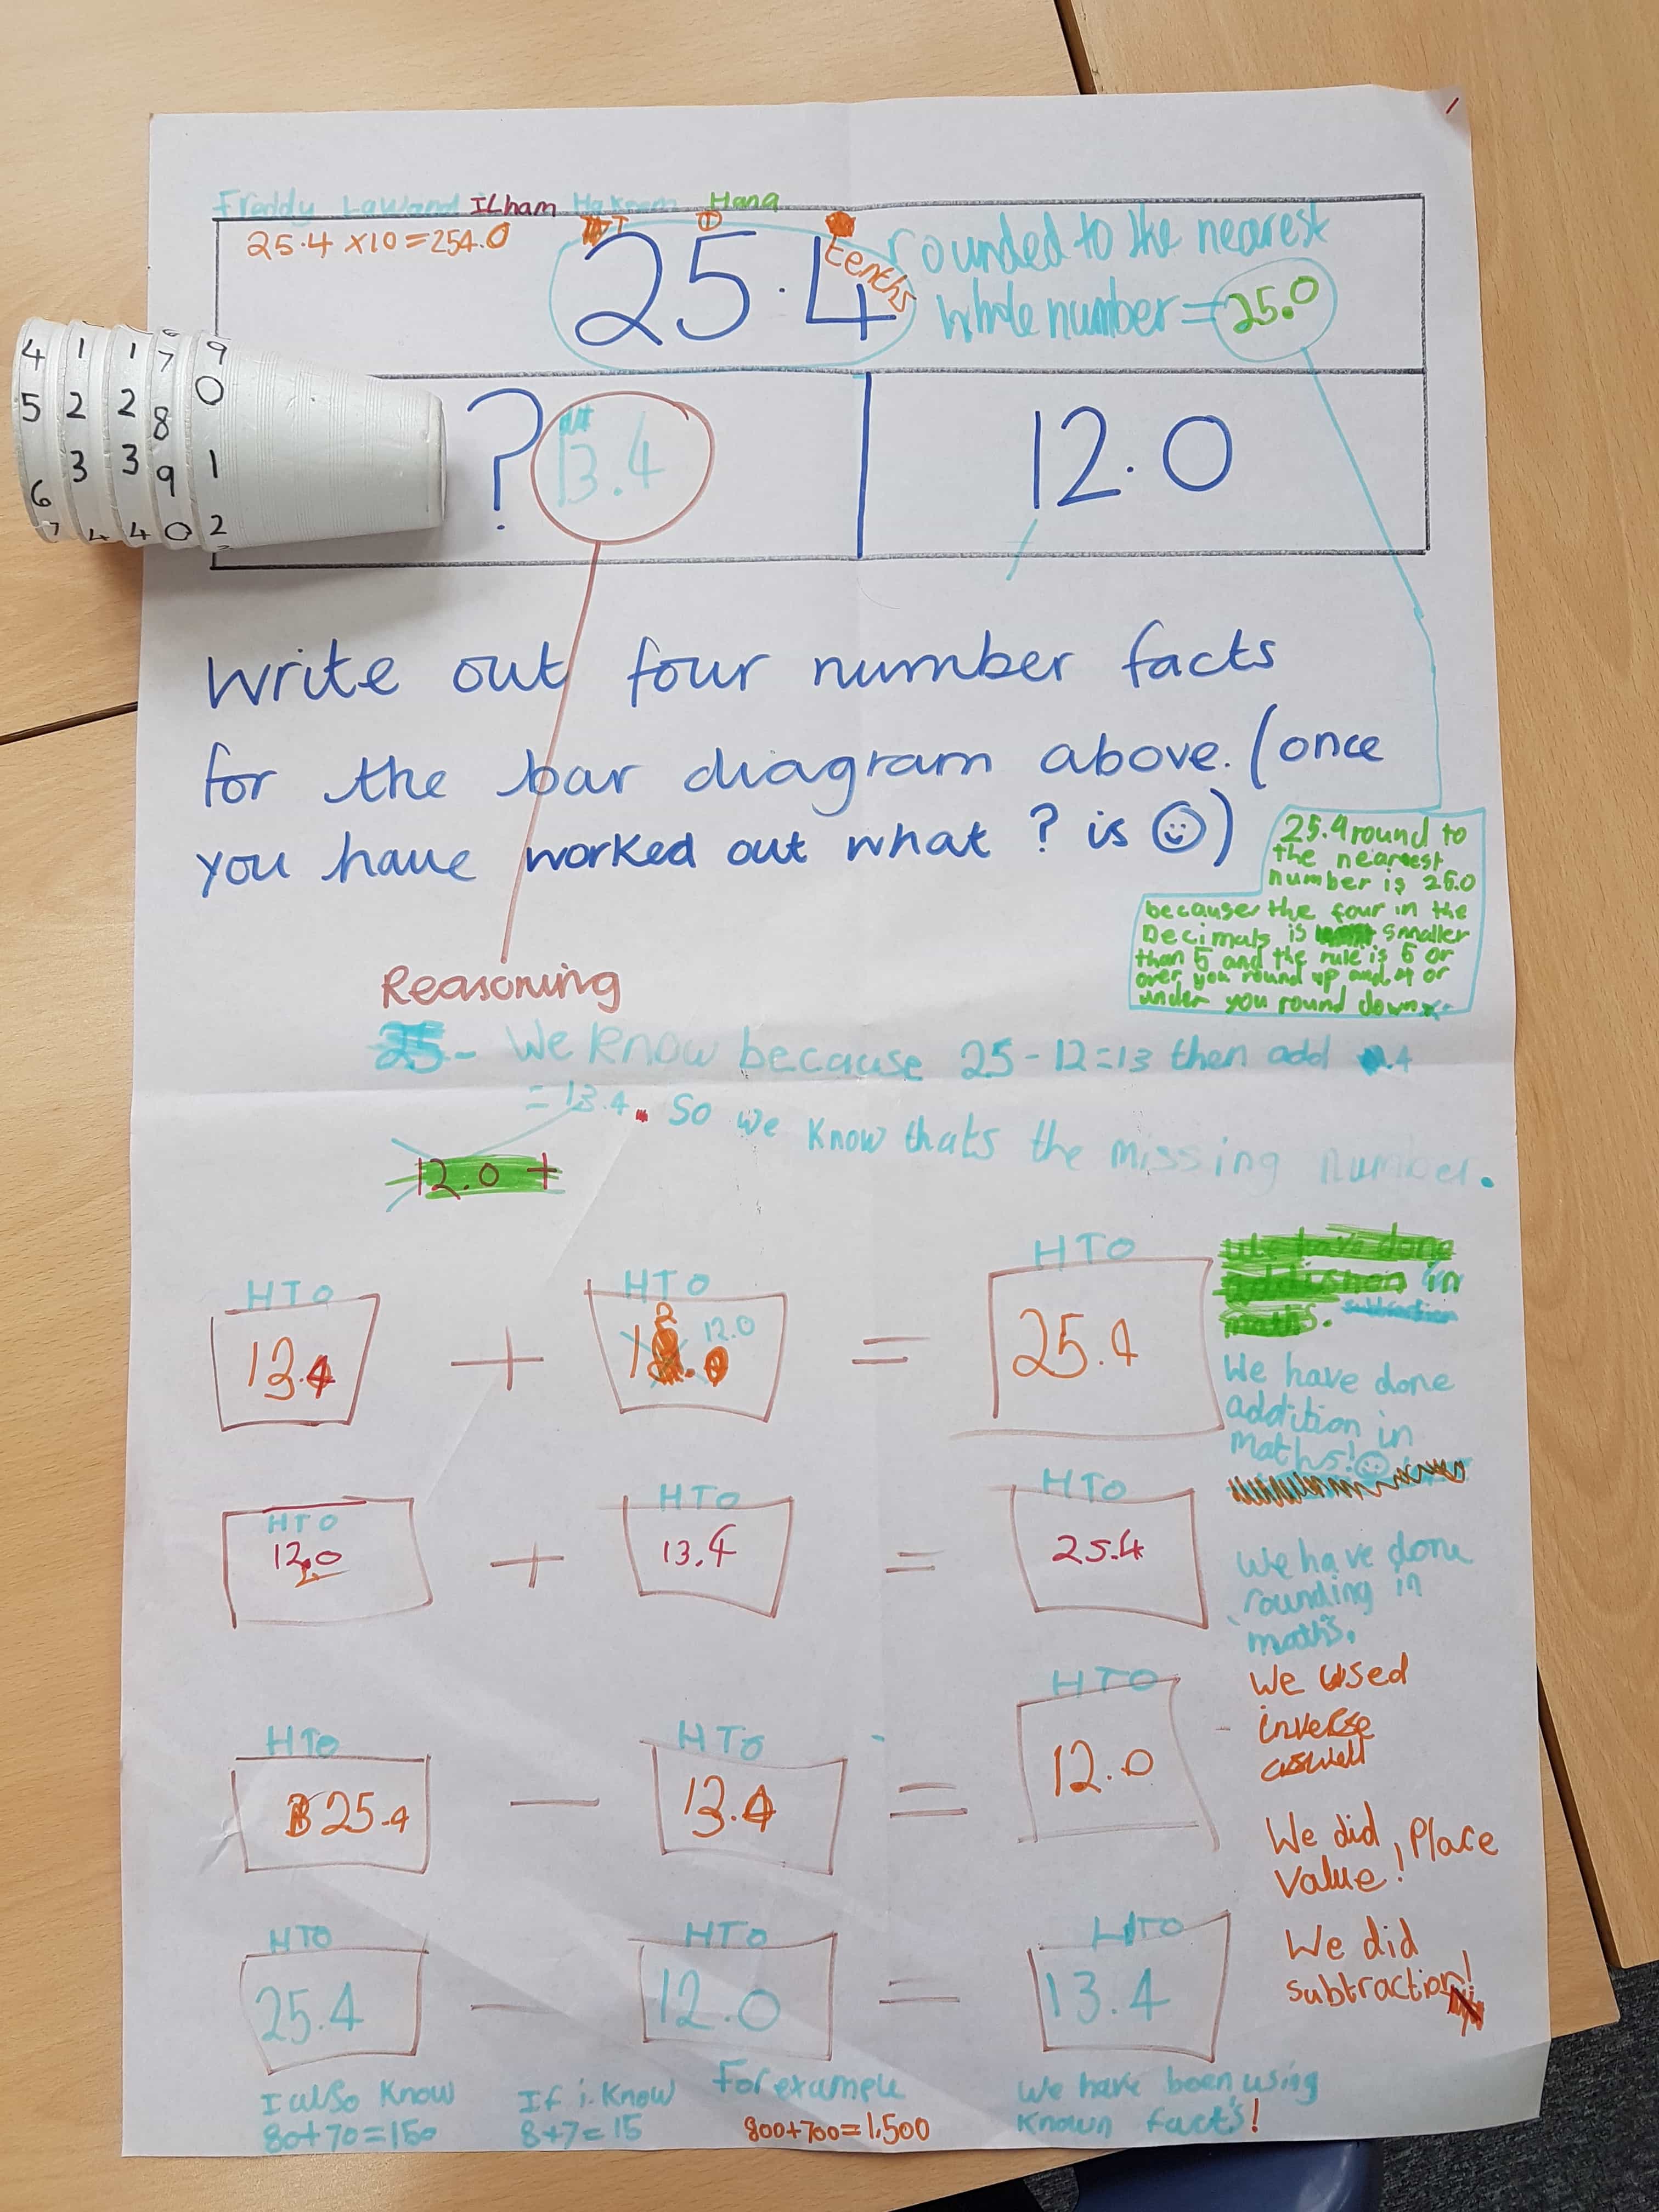 Freddy Lawand Ilham Hakeem Hana
25.4 x10 = 254.0
T O tenths
25.4
rounded to the nearest
whole number = 25.0
4 1 1 7 9
5 2 2 8 0
6 3 3 9 1
7 4 4 0 2
? 13.4
12.0
Write out four number facts
for the bar diagram above. (once
you have worked out what ? is ☺)
25.4 round to
the nearest
number is 25.0
because the four in the
Decimals is smaller
than 5 and the rule is 5 or
over you round up and 4 or
under you round down
Reasoning
25 - We know because 25 - 12 = 13 then add 0.4
= 13.4. So we know thats the missing number.
12.0 +
HTO HTO HTO
13.4 + 12.0 = 25.4
We have done
addition in
maths.
subtraction
We have done
addition in
maths! ☺
HTO HTO HTO
12.0 + 13.4 = 25.4
We have done
rounding in
maths.
HTO HTO HTO
25.4 - 13.4 = 12.0
We used
inverse
aswell
We did, Place
Value!
HTO HTO HTO
25.4 - 12.0 = 13.4
We did
subtraction!
I also know
80+70=150
If i know
8+7=15
For example
800+700=1,500
We have been using
known facts!